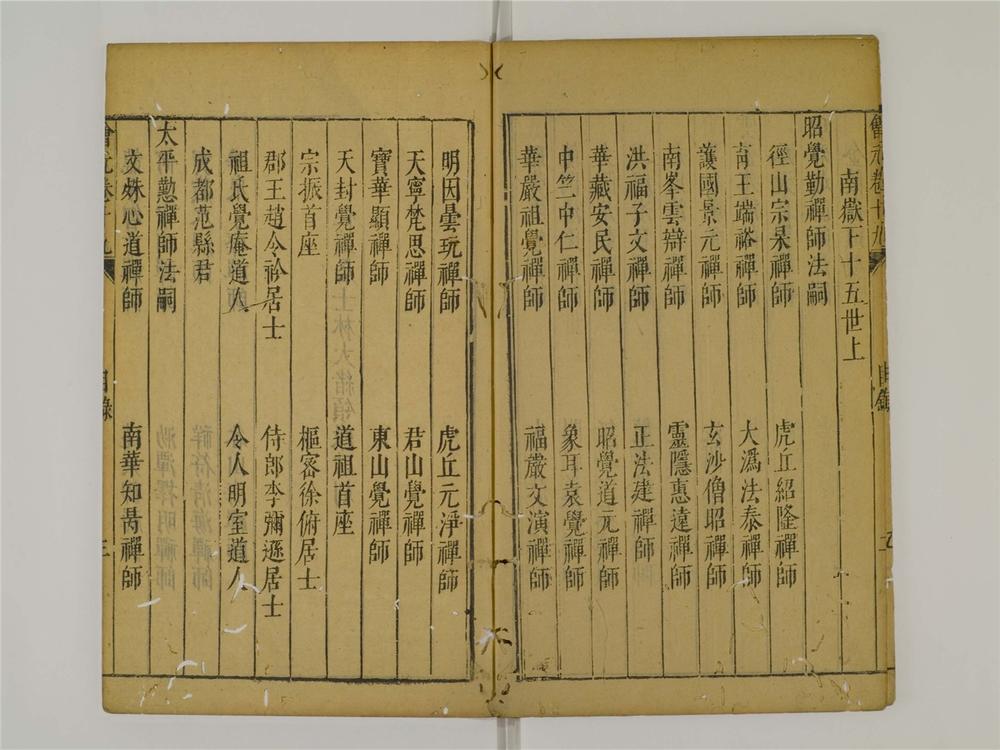 會元卷十九 目錄
南嶽下十五世上
昭覺勤禪師法嗣
徑山宗杲禪師 虎丘紹隆禪師
育王端裕禪師 大溈法泰禪師
護國景元禪師 玄沙僧昭禪師
南峯雲辯禪師 靈隱惠遠禪師
洪福子文禪師 正法建禪師
華藏安民禪師 昭覺道元禪師
中竺中仁禪師 象耳袁覺禪師
華嚴祖覺禪師 福嚴文演禪師
明因曇玩禪師 虎丘元淨禪師
天寧梵思禪師 君山覺禪師
寶華顯禪師 東山覺禪師
天封覺禪師 道祖首座
宗振首座 樞密徐俯居士
郡王趙令衿居士 侍郎李彌遜居士
祖氏覺庵道人 令人明室道人
成都范縣君
太平懃禪師法嗣
文殊心道禪師 南華知昺禪師
會元卷十九 目錄 三